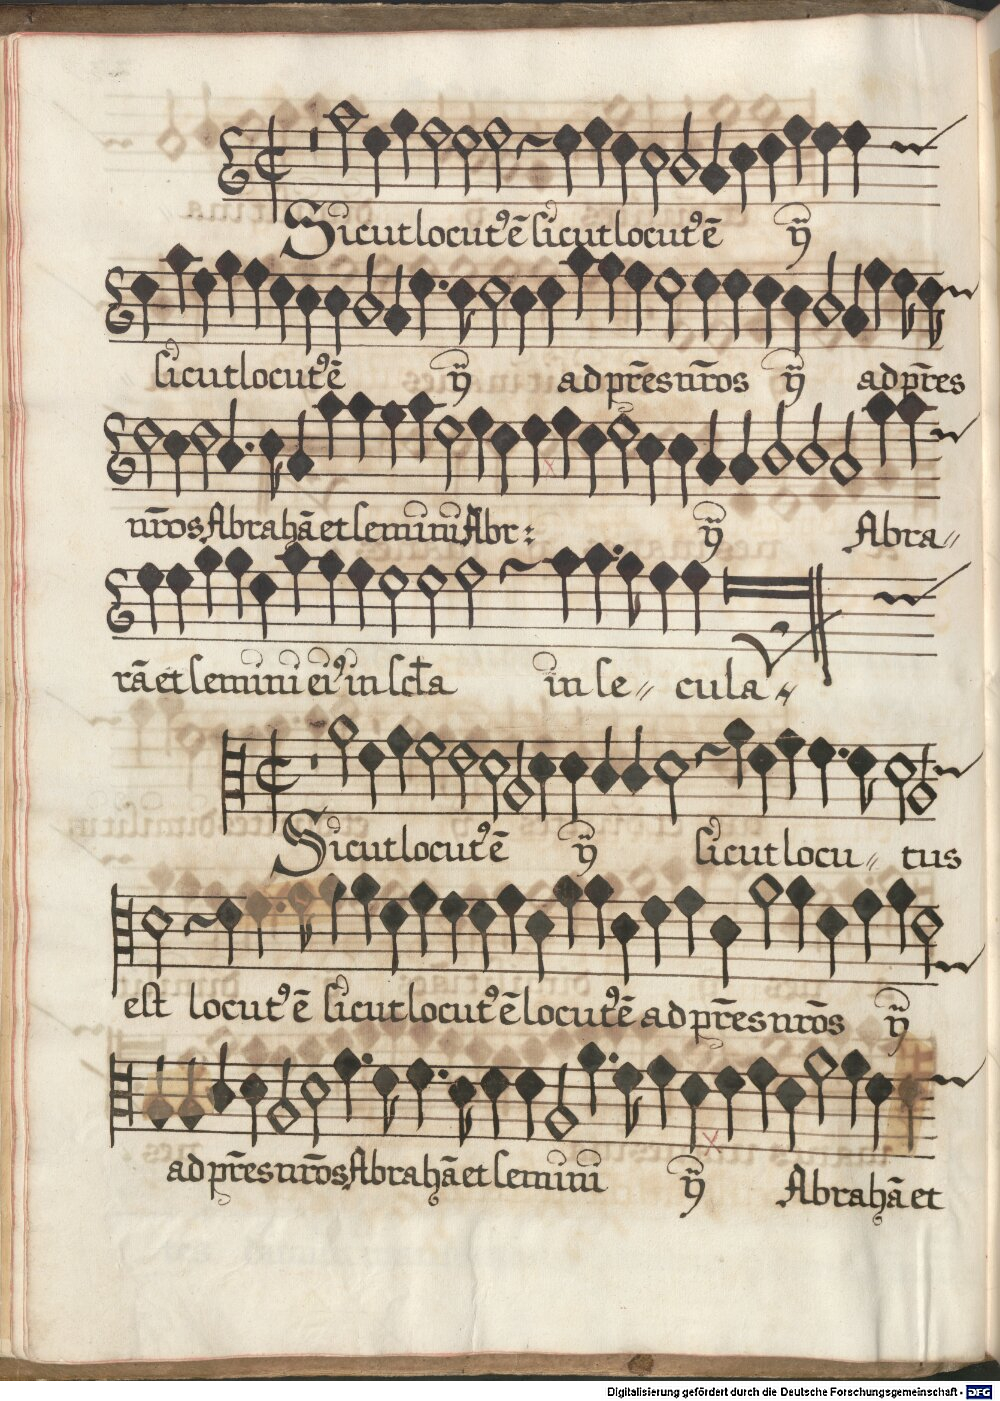 Sicut locut⁹ ē sicut locut⁹ ē ij
sicut locut⁹ ē ij ad pr̄es nr̄os ij ad pr̄es
nr̄os Abrahā et semini Abr: ij Abra〃
rā et semini ei⁹ in scl̄a in se〃 cula〃
Sicut locut⁹ ē ij sicut locu〃 tus
est locut⁹ ē sicut locut⁹ ē locut⁹ ē ad pr̄es nr̄os ij
ad pr̄es nr̄os Abrahā et semini ij Abrahā et
Digitalisierung gefördert durch die Deutsche Forschungsgemeinschaft - DFG